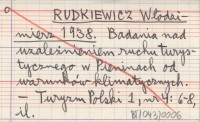 RUDKIEWICZ Włodzi-
mierz 1938. Badania nad
uzależnieniem ruchu turys-
tycznego w Pieninach od
warunków klimatycznych.
— Turyzm Polski 1, nr 1: 6-8,
il.